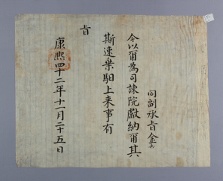 同副承旨金
今以爾爲司諫院獻納爾其
斯速乘馹上来事有
旨
康熙四十二年十一月二十五日